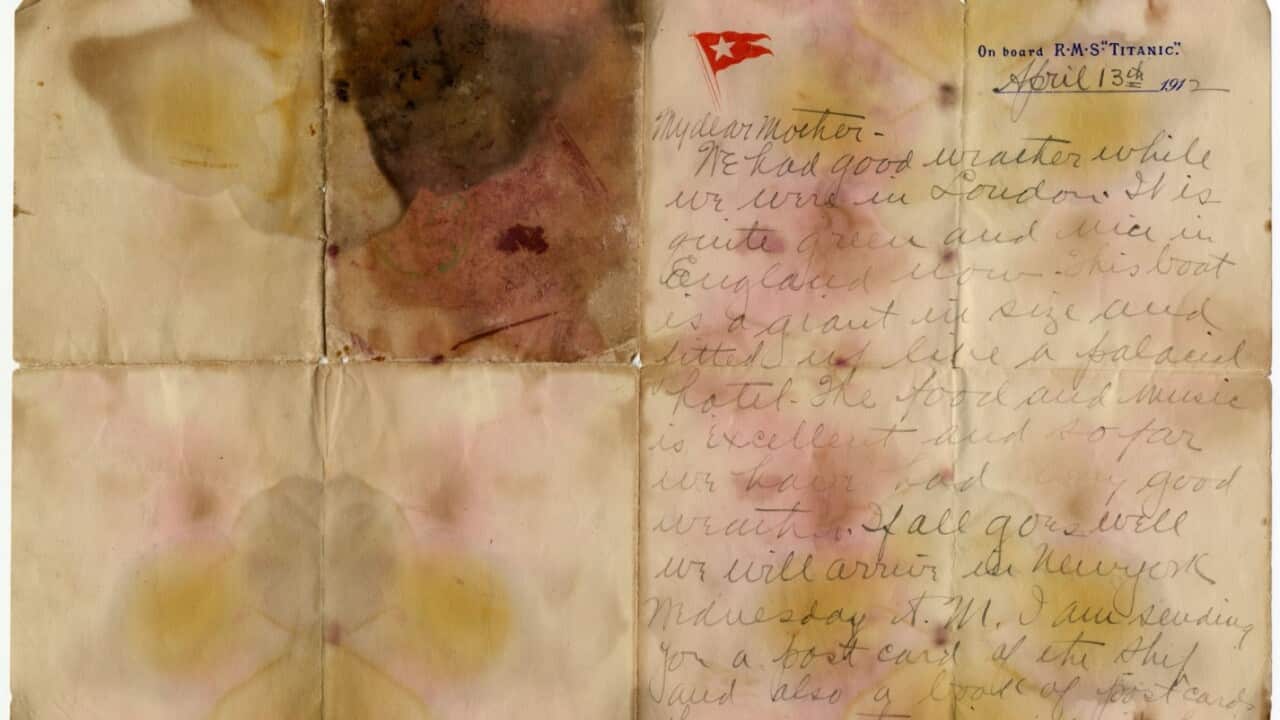 On board R·M·S "TITANIC".
April 13th 1912
My dear Mother-
We had good weather while
we were in London. It is
quite green and nice in
England now. This boat
is a giant in size and
fitted up like a palacial
hotel. The food and music
is excellent and so far
we have had very good
weather. If all goes well
we will arrive in New york
Wednesday A.M. I am sending
you a post card of the ship
and also a book of postcards